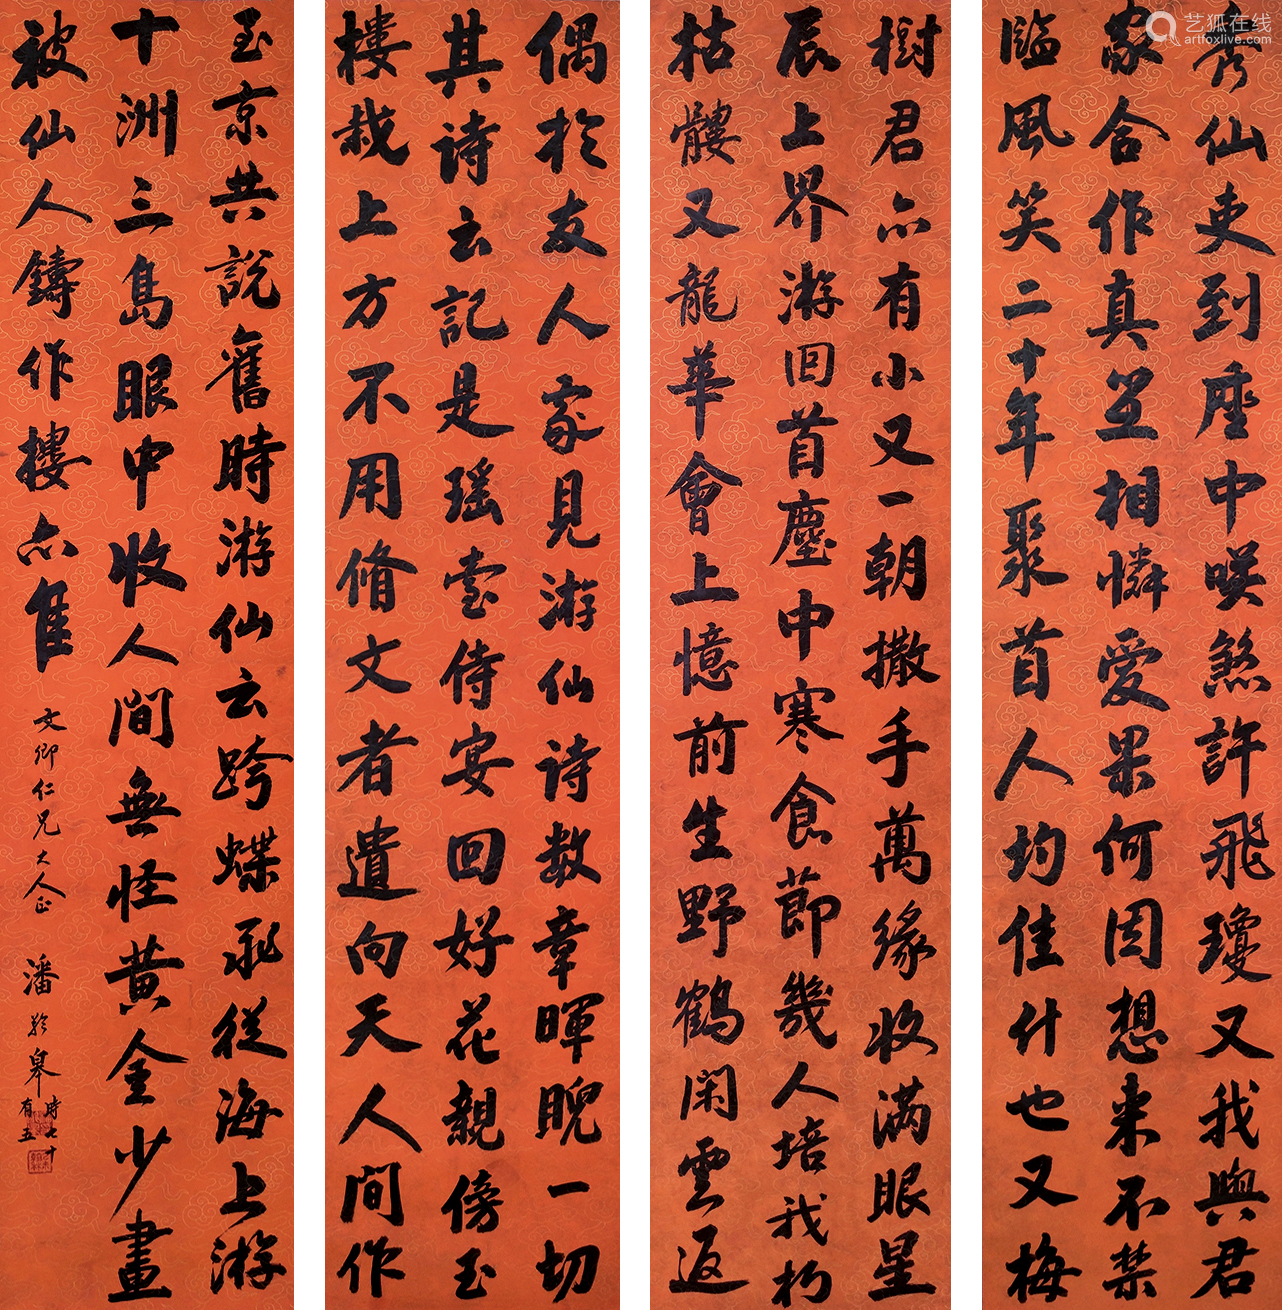 仙吏到座中咲煞許飛瓊又我與君
家合作真相憐愛果何因想來不禁
臨風笑二十年聚首人均佳什也又梅
樹君亦有小又一朝撒手萬緣收滿眼星
辰上界游回首塵中寒食節幾人培我朽
枯髏又龍華會上憶前生野鶴閑雲返
偶於友人家見游仙詩數章暉睨一切
其詩云記是瑤臺侍安回好花親傍玉
樓栽上方不用脩文者遺向天人間作
玉京共說舊時游仙云跨蝶飛從海上游
十洲三島眼中收人間無怪黃金少畫
被仙人鑄作樓亦雋
文卿仁兄大人正
潘齡皋時七十有五
艺狐在线
artfoxlive.com